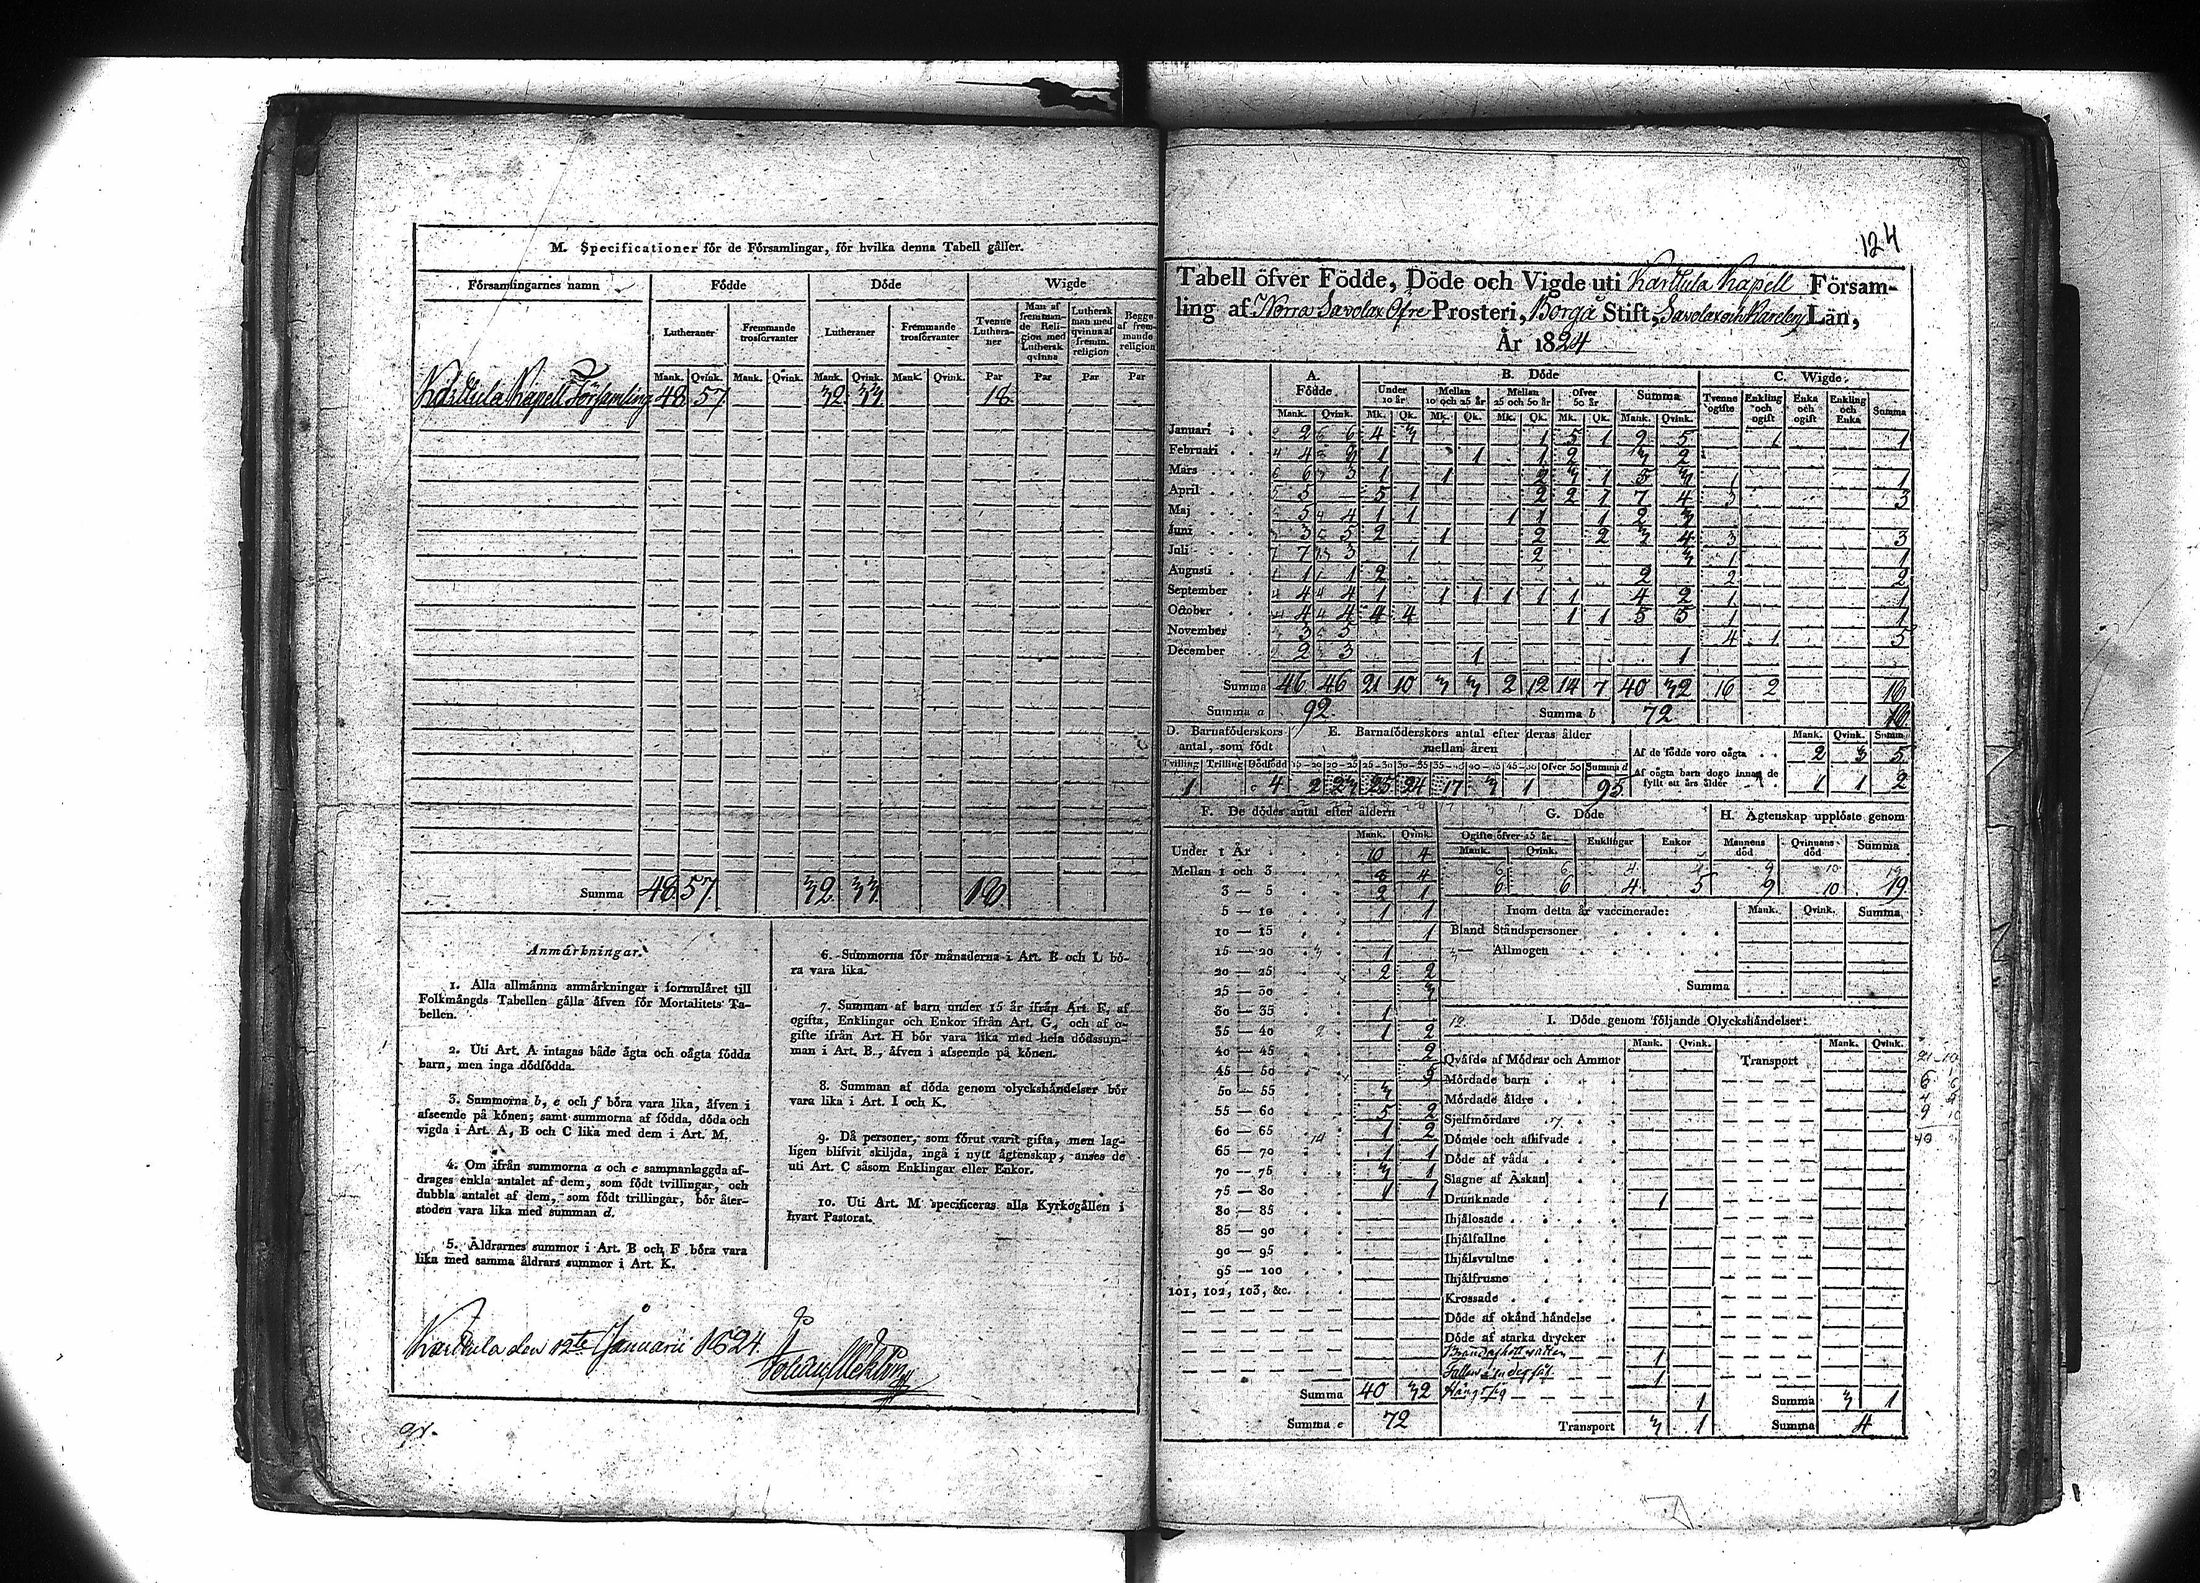 M. Specificationer för de Församlingar, för hvilka denna Tabell gäller.
Församlingarnes namn Födde Döde Wigde
Lutheraner Fremmande trosförvanter Lutheraner Fremmande trosförvanter Tvenne Lutheraner Man af fremmande Religion med Luthersk qvinna Luthersk man med qvinna af fremm. religion Begge af fremmande religion
Mank. Qvink. Mank. Qvink. Mank. Qvink. Mank. Qvink. Par Par Par Par
Karttula Kapell Församling 48 57 32 33 18
Summa 48 57 32 33 18
Anmärkningar.
1. Alla allmänna anmärkningar i formuläret till
Folkmängds Tabellen gälla äfven för Mortalitets Ta-
bellen.
2. Uti Art. A intagas både ägta och oägta födda
barn, men inga dödfödda.
3. Summorna b, e och f böra vara lika, äfven i
afseende på könen; samt summorna af födda, döda och
vigda i Art. A, B och C lika med dem i Art. M.
4. Om ifrån summorna a och c sammanlaggda af-
drages enkla antalet af dem, som födt tvillingar, och
dubbla antalet af dem, som födt trillingar, bör åter-
stoden vara lika med summan d.
5. Åldrarnes summor i Art. B och F böra vara
lika med samma åldrars summor i Art. K.
6. Summorna för månaderna i Art. B och L bö-
ra vara lika.
7. Summan af barn under 15 år ifrån Art. F, af
ogifta, Enklingar och Enkor ifrån Art. G, och af o-
gifte ifrån Art. H bör vara lika med hela dödssum-
man i Art. B., äfven i afseende på könen.
8. Summan af döda genom olyckshändelser bör
vara lika i Art. I och K.
9. Då personer, som förut varit gifta, men lag-
ligen blifvit skiljda, ingå i nytt ägtenskap, anses de
uti Art. C såsom Enklingar eller Enkor.
10. Uti Art. M specificeras alla Kyrkogällen i
hvart Pastorat.
Karttula den 12te Januarii 1824.
124
Tabell öfver Födde, Döde och Vigde uti Karttula Kapell Försam-
ling af Norra Savolax Öfre Prosteri, Borgå Stift, Savolax och Karelens Län,
År 1824
A. Födde B. Döde C. Wigde.
Under 10 år Mellan 10 och 25 år Mellan 25 och 50 år Öfver 50 år Summa Tvenne ogifte Enkling och ogift Enka och ogift Enkling och Enka Summa
Mank. Qvink. Mk. Qk. Mk. Qk. Mk. Qk. Mk. Qk. Mank. Qvink.
Januari 2 6 4 3 1 5 1 9 5 1 1
Februari 4 8 1 1 1 2 3 2
Mars 6 3 1 1 2 3 1 5 3 1 1
April 5 5 1 2 2 1 7 4 3 3
Maj 5 4 1 1 1 1 1 2 3
Juni 3 5 2 1 2 2 3 4 3 3
Juli 7 3 1 2 3 1 1
Augusti 1 1 2 2 2 2
September 4 4 1 1 1 1 1 1 4 2 1 1
October 4 4 4 4 1 1 5 5 1 1
November 3 5 4 1 5
December 2 3 1 1
Summa 46 46 21 10 3 3 2 12 14 7 40 32 16 2 18
Summa a 92 Summa b 72 18
D. Barnaföderskors antal, som födt
Tvilling Trilling Dödfödd
1 4
E. Barnaföderskors antal efter deras ålder mellan åren
15—20 20—25 25—30 30—35 35—40 40—45 45—50 Öfver 50 Summa d
2 23 25 24 17 3 1 95
Mank. Qvink. Summa
Af de födde voro oägta 2 3 5
Af oägta barn dogo innan de fyllt ett års ålder 1 1 2
F. De dödes antal efter åldern
Mank. Qvink.
Under 1 År 10 4
Mellan 1 och 3 8 4
3 — 5 2 1
5 — 10 1 1
10 — 15 1
15 — 20 1
20 — 25 2 2
25 — 30 3
30 — 35 1
35 — 40 1 2
40 — 45 2
45 — 50 5
50 — 55 3
55 — 60 5 2
60 — 65 1 2
65 — 70 1 1
70 — 75 3 1
75 — 80 1 1
80 — 85
85 — 90
90 — 95
95 — 100
101, 102, 103, &c.
Summa 40 32
Summa e 72
G. Döde
Ogifte öfver 15 år Enklingar Enkor
Mank. Qvink.
6 6 4 5
H. Ägtenskap upplöste genom
Mannens död Qvinnans död Summa
9 10 19
Inom detta år vaccinerade: Mank. Qvink. Summa
Bland Ståndspersoner
— Allmogen
Summa
I. Döde genom följande Olyckshändelser:
Mank. Qvink. Transport Mank. Qvink.
Qväfde af Mödrar och Ammor
Mördade barn
Mördade äldre
Sjelfmördare
Dömde och aflifvade
Döde af våda
Slagne af Åskan
Drunknade 1
Ihjälosade
Ihjälfallne
Ihjälsvultne
Ihjälfrusne
Krossade
Döde af okänd händelse
Döde af starka drycker
1
1
Hängt sig 1
Summa 3 1
Transport 3 1 Summa 4